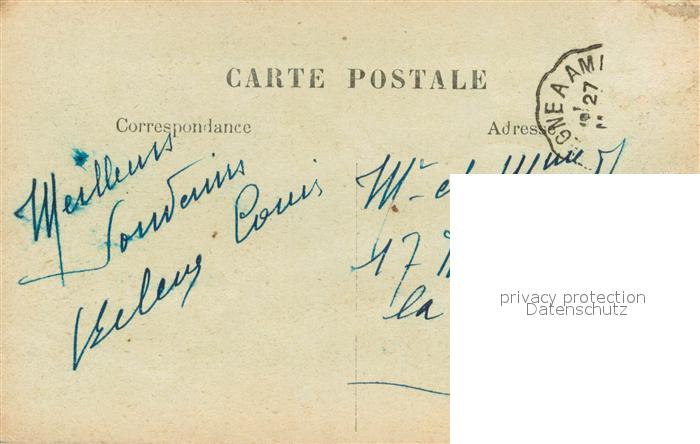 CARTE POSTALE
Correspondance
Adresse
GNE A AMI
27
Meilleurs
Souvenirs
Louis
Helene
Mr et Mme
17
la
privacy protection
Datenschutz